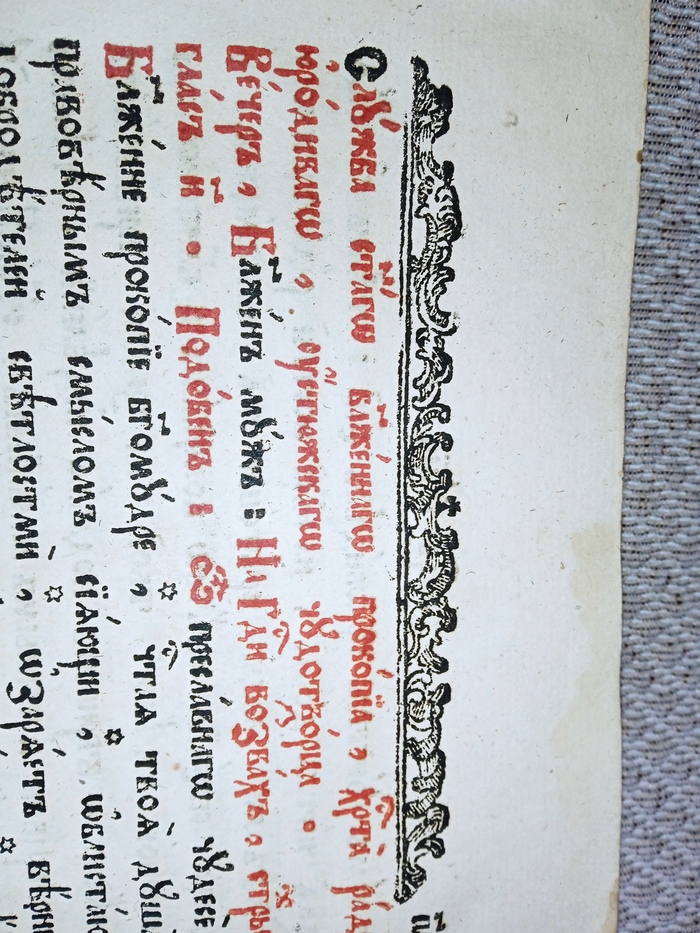 Слꙋ́жба ст҃а́гѡ бл҃же́ннагѡ проко́пїа , хр҇та̀ ра́д
юро́дивагѡ , ᲂу҆́стюжскагѡ чꙋдотво́рца .
Ве́черъ , Бл҃же́нъ мꙋ́жъ : На Гд҇и воззва́хъ , стры
гла́съ и҃ . Подо́бенъ : Ѽ пресла́внагѡ чꙋдесѐ
Бл҃же́нне проко́пїе бг҃омꙋ́дре , чⷭ҇таѧ твоѧ̀ дꙋша
правовѣ́рнымъ смы́сломъ сїѧ́ющи , ѡблиста
добродѣ́телей свѣ́тлостми , ѡ҆зарѧ́етъ вѣ́рны